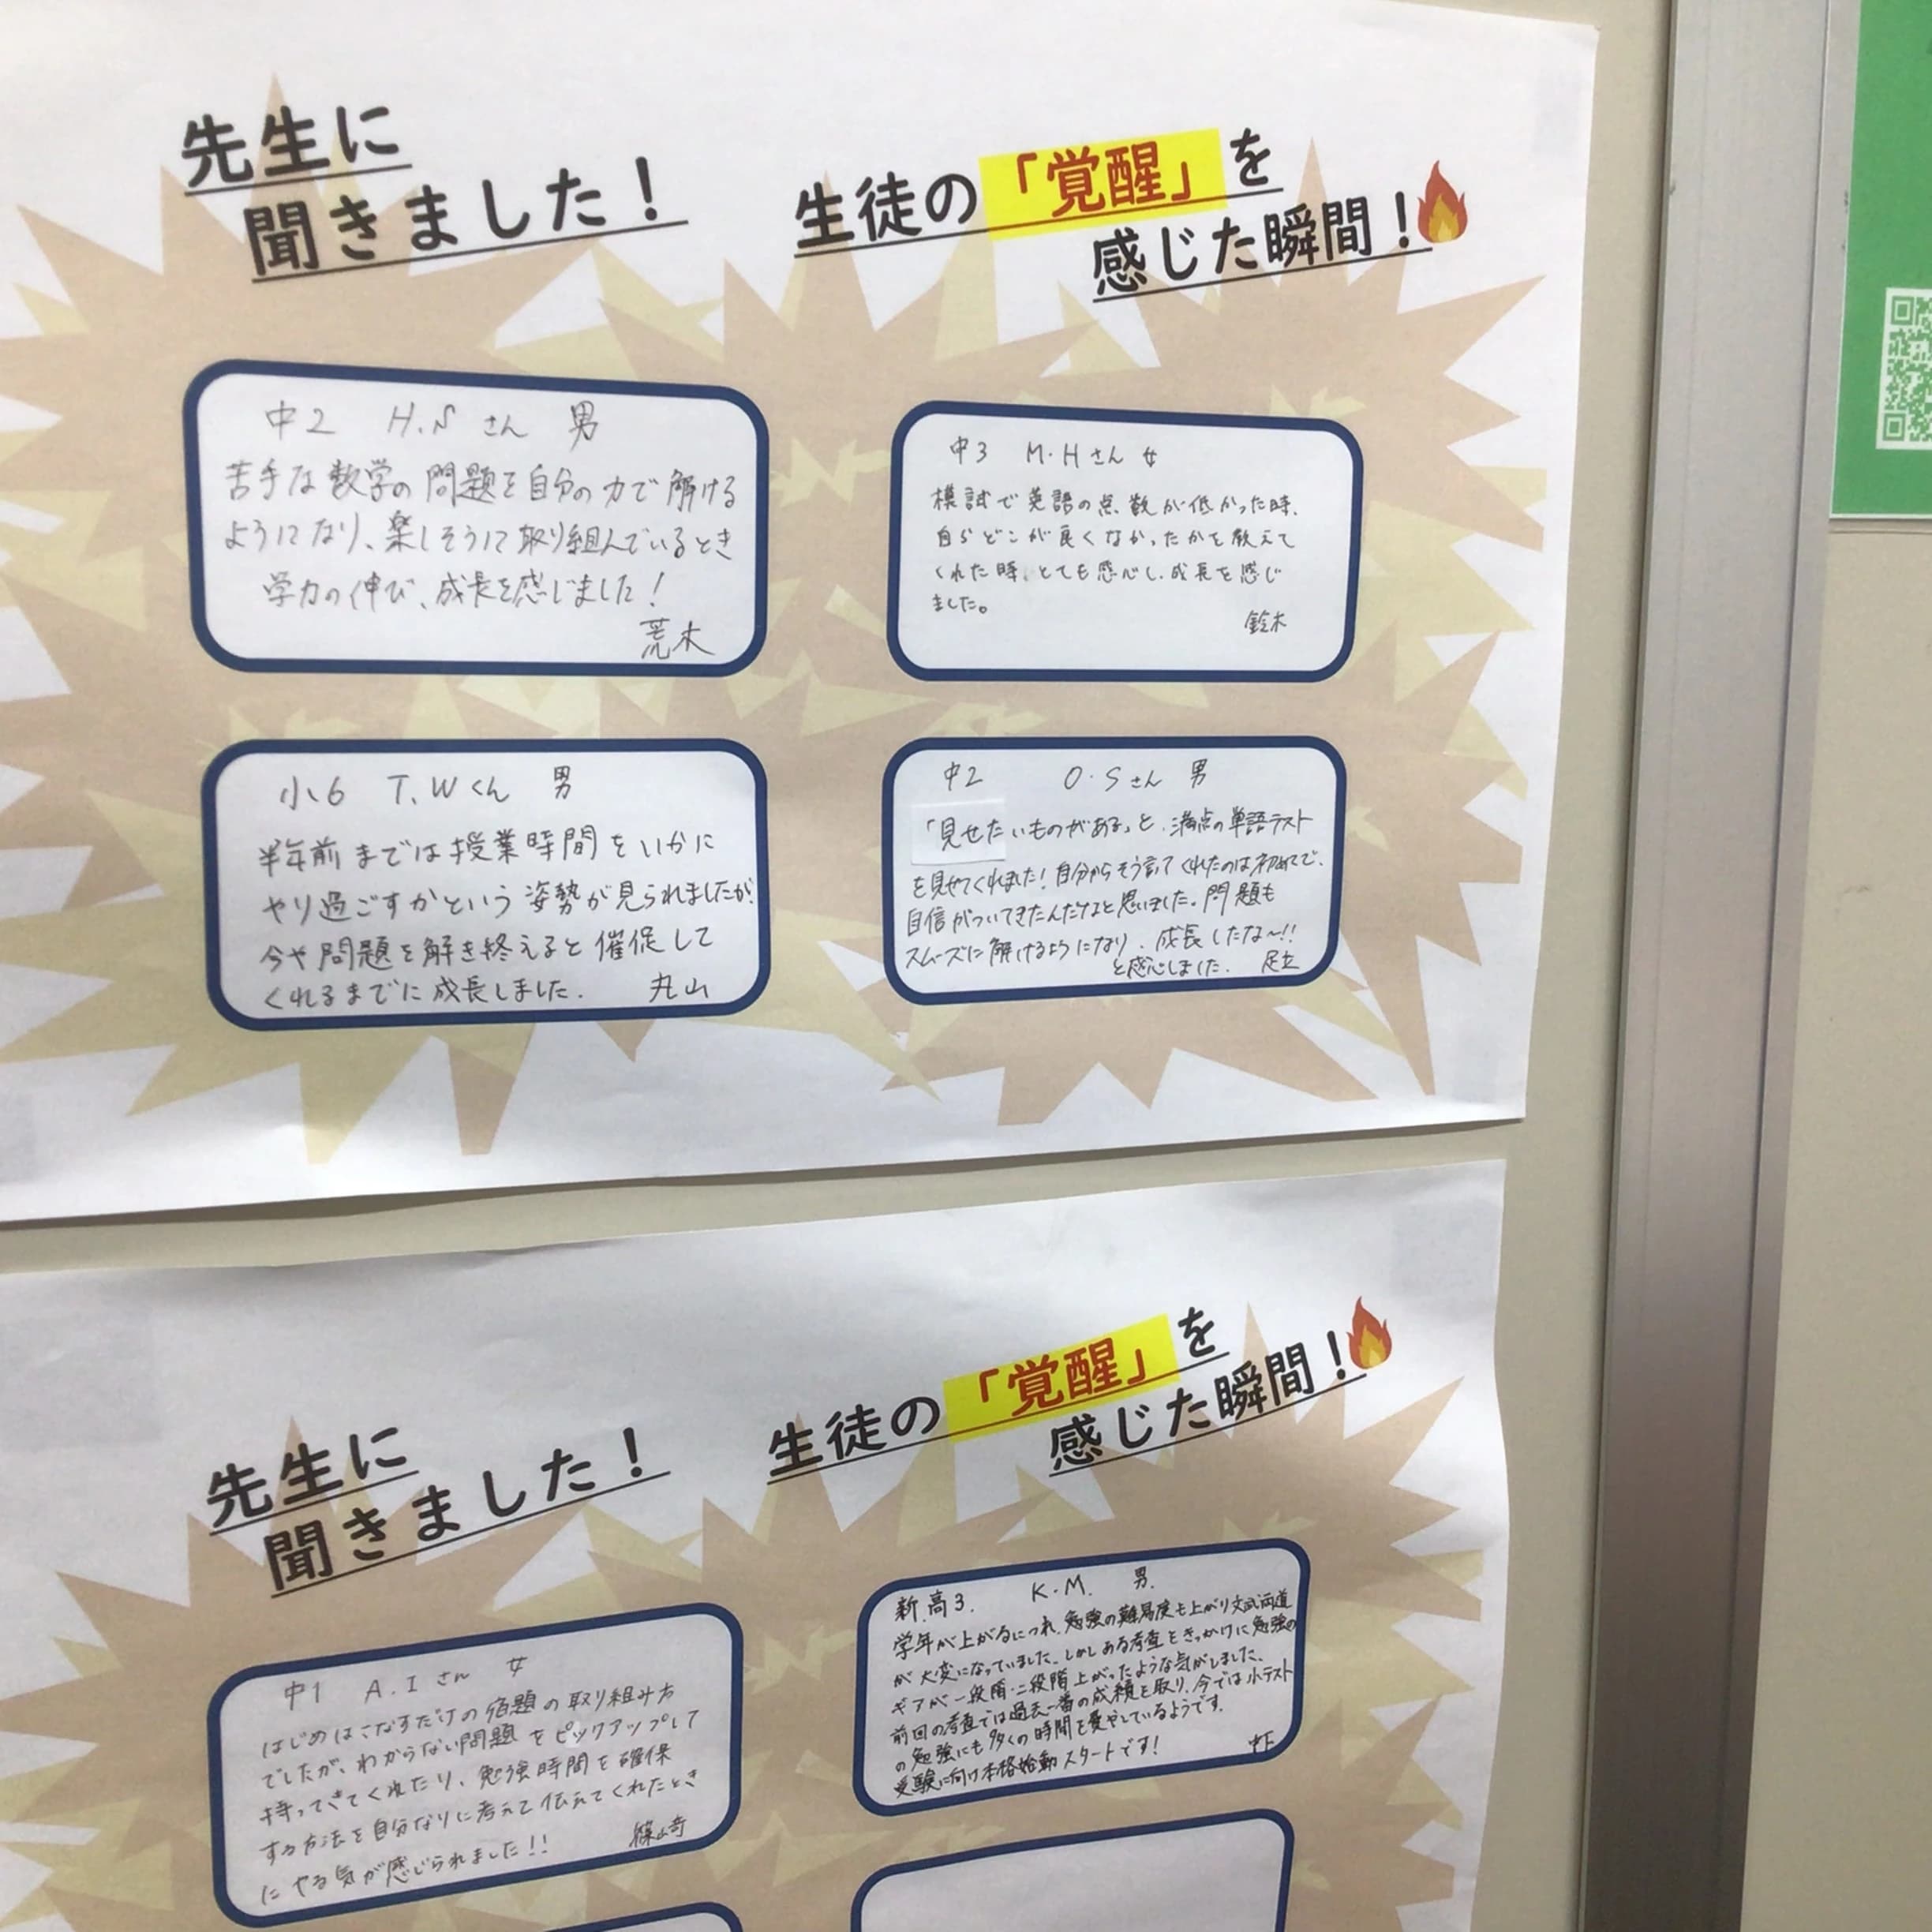 先生に
聞きました！
生徒の「覚醒」を
感じた瞬間！
中2 H.N さん 男
苦手な数学の問題を自分の力で解ける
ようになり、楽しそうに取り組んでいるとき
学力の伸び、成長を感じました！
荒木
中3 M.Hさん 女
模試で英語の点数が低かった時、
自らどこが良くなかったかを教えて
くれた時、とても感心し、成長を感じ
ました。
鈴木
小6 T.Wくん 男
半年前までは授業時間をいかに
やり過ごすかという姿勢が見られましたが、
今や問題を解き終えると催促して
くれるまでに成長しました.
丸山
中2 O.Sさん 男
「見せたいものがある」と、満点の単語テスト
を見せてくれました！自分からそう言ってくれたのは初めてで、
自信がついてきたんだなと思いました。問題も
スムーズに解けるようになり、成長したな〜!!
と感心しました. 足立
先生に
聞きました！
生徒の「覚醒」を
感じた瞬間！
中1 A.Iさん 女
はじめはこなすだけの宿題の取り組み方
でしたが、わからない問題をピックアップして
持ってきてくれたり、勉強時間を確保
する方法を自分なりに考えて伝えてくれたとき
にやる気が感じられました!!
篠崎
新高3. K.M. 男.
学年が上がるにつれ、勉強の難易度も上がり文武両道
が大変になっていました.しかしある考査をきっかけに勉強の
ギアが一段階・二段階上がったような気がしました.
前回の考査では過去一番の成績を取り、今では小テスト
の勉強にも多くの時間を費やしているようです.
受験に向け本格始動スタートです！